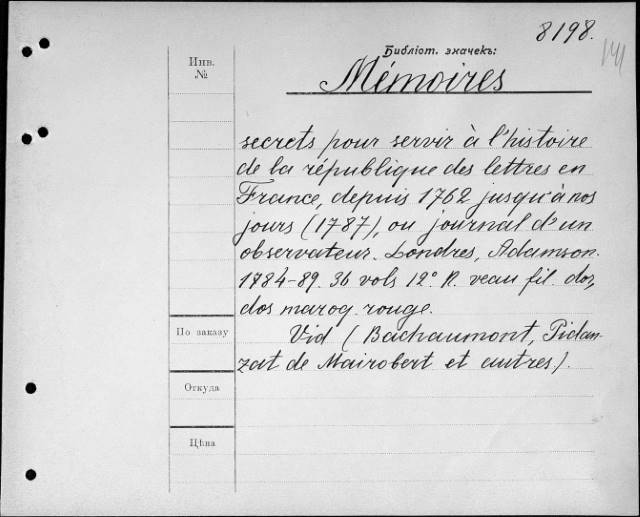 8198.
141
Библіот. значекъ:
Инв.
№
Mémoires
secrets pour servir à l'histoire
de la république des lettres en
France, depuis 1762 jusqu'à nos
jours (1787), ou journal d'un
observateur. Londres, Adamson.
1784-89. 36 vols 12° R. veau fil. dor,
dos maroq. rouge.
По заказу
Vid (Bachaumont, Pidan-
zat de Mairobert et autres).
Откуда
Цѣна